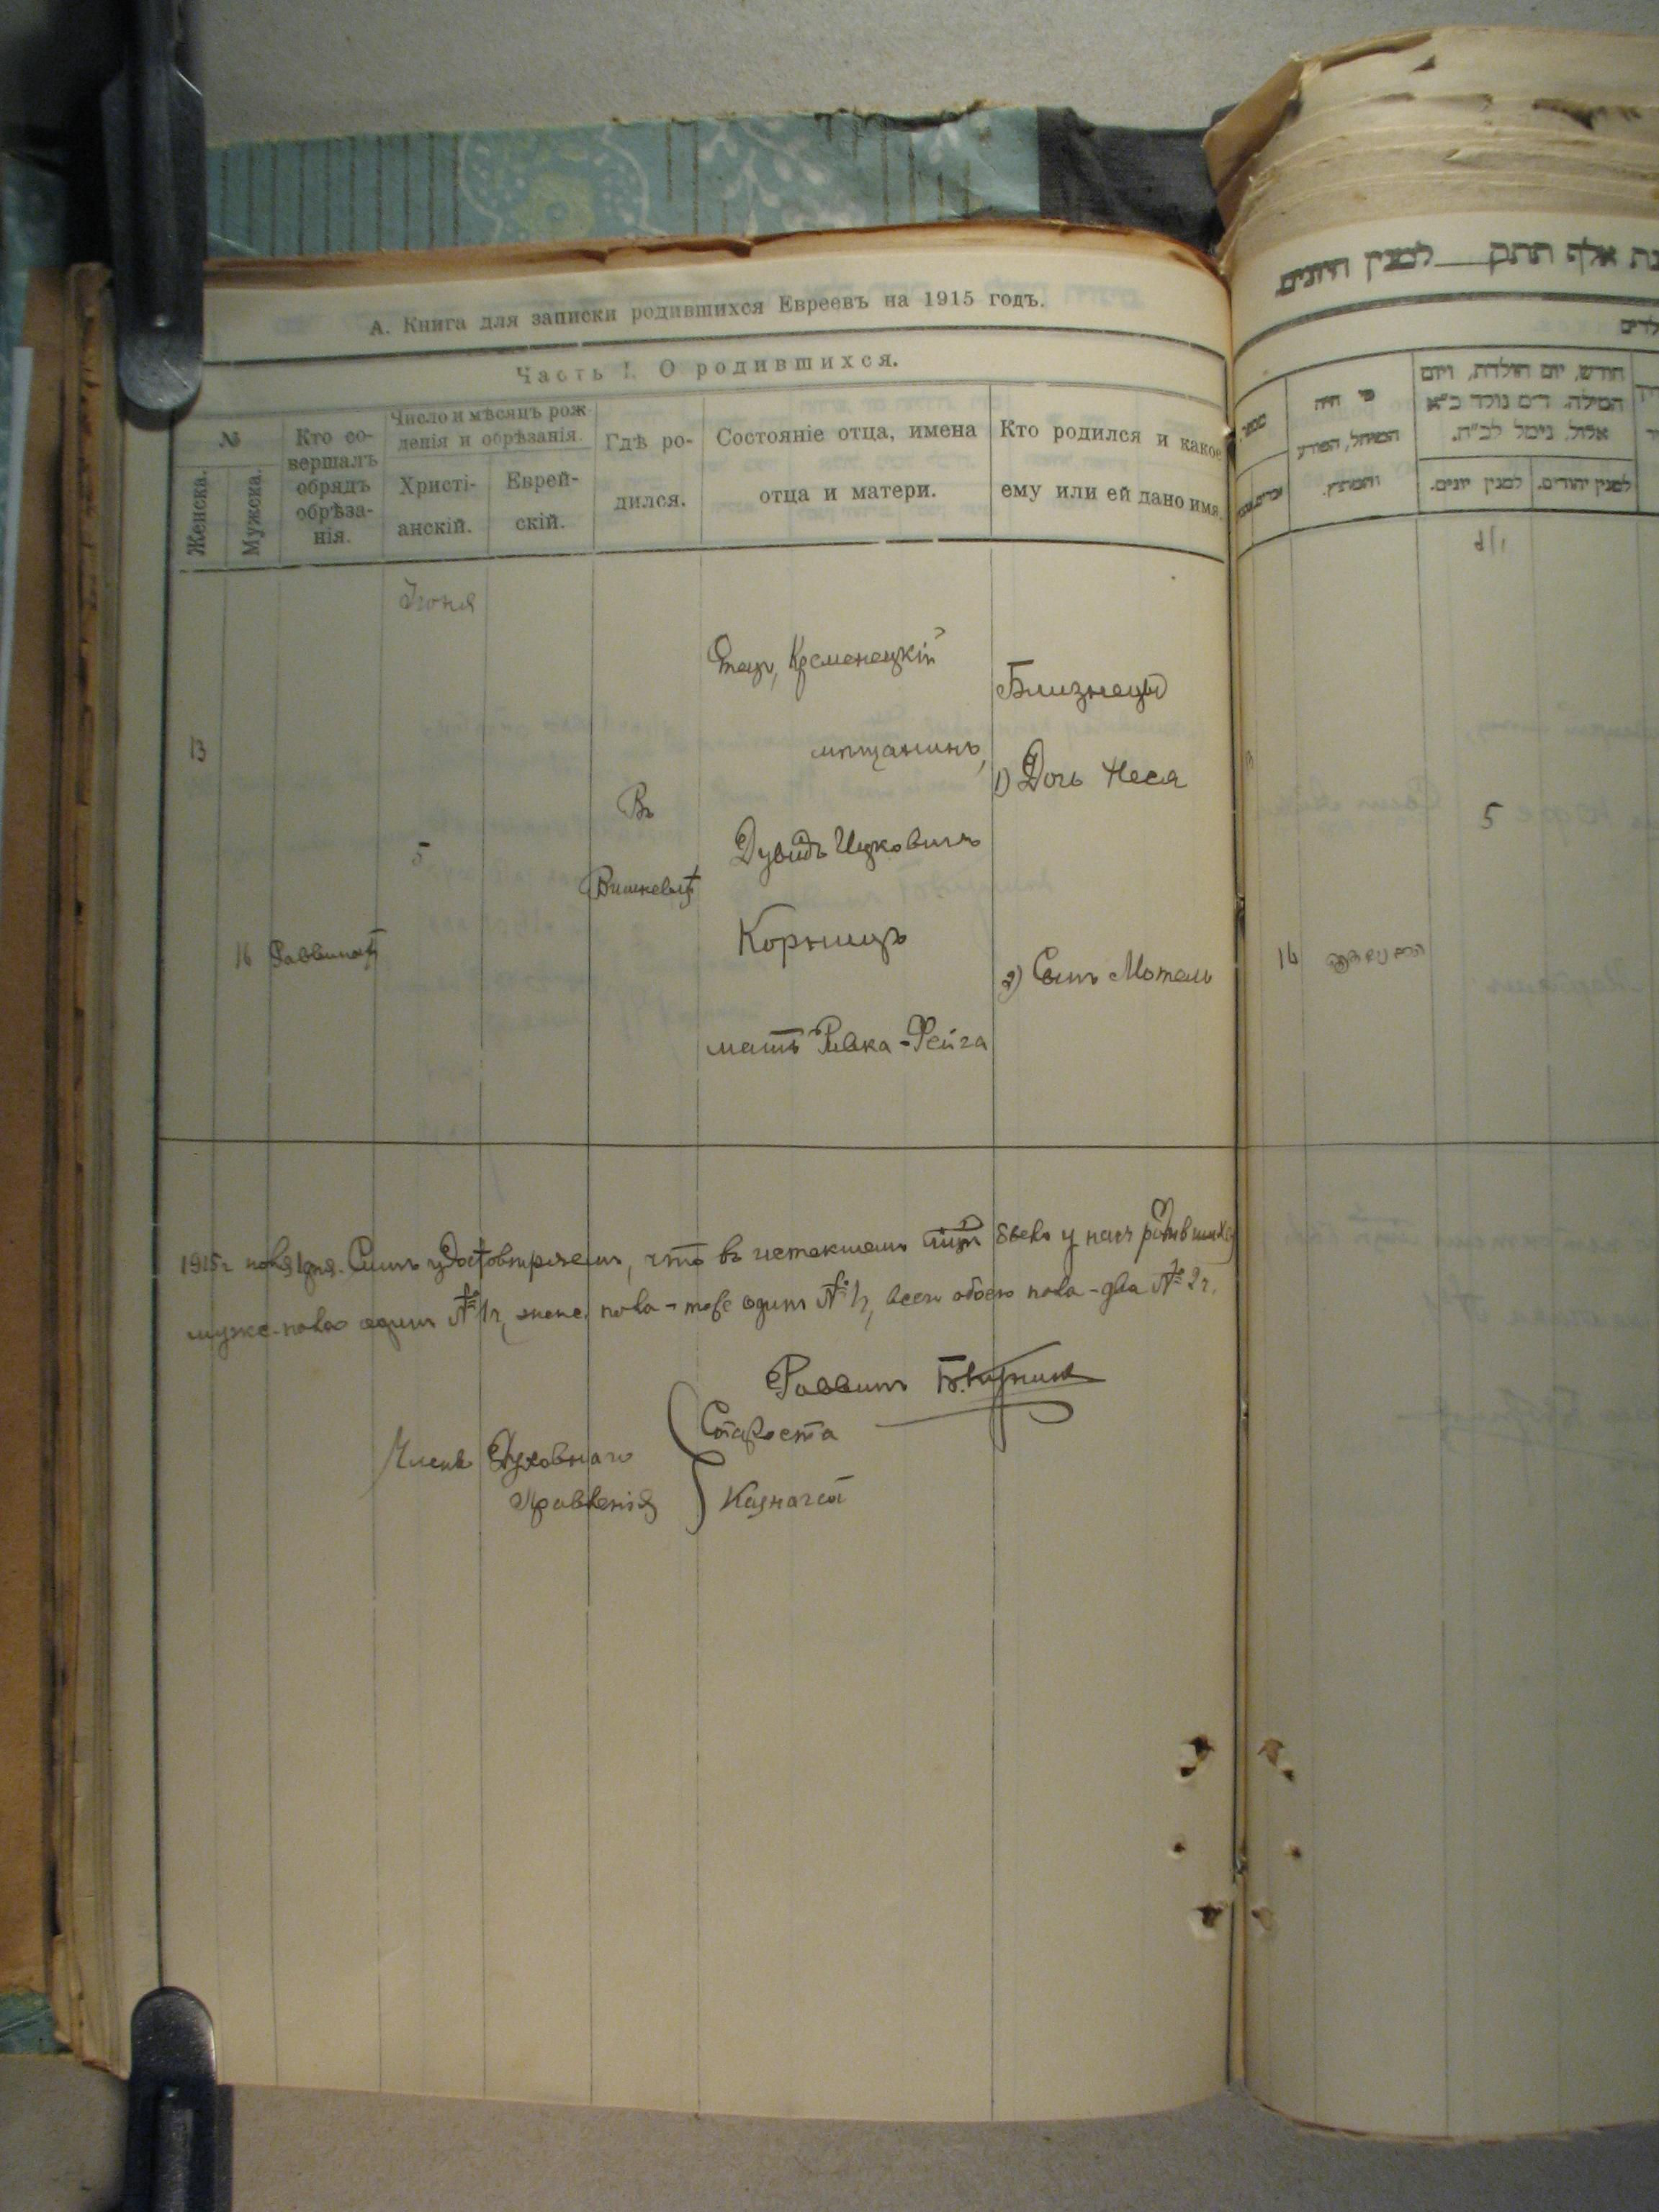 А. Книга для записки родившихся Евреевъ на 1915 годъ.
Часть I. О родившихся.
№
Женска.
Мужска.
Кто со-
вершалъ
обрядъ
обрѣза-
нія.
Число и мѣсяцъ рож
денія и обрѣзанія.
Христі-
анскій.
Еврей-
скій.
Гдѣ ро-
дился.
Состояніе отца, имена
отца и матери.
Кто родился и какое
ему или ей дано имя.
Іюня
13
16
Раввинатъ
5
Въ
Вишневцѣ
Отецъ, Кременецкій
мѣщанинъ,
Дувидъ Ицковичъ
Корницъ
мать Ривка-Фейга
Близнецы
1) Дочь Неся
2) Сынъ Мотель
1915 г. Симъ удостовѣряемъ, что въ истекшемъ было у насъ родившихся
муже. пола одинъ № 1, женс. пола - тоже одинъ № 1, всего обоего пола - два № 2.
Раввинъ
Члены Духовнаго
Правленія
Староста
Казначей
למנין היונים
חודש, יום הולדת, ויום
המילה. ד״מ נולד כ״א
אלול, נימול לכ״ח.
מי היה
המוהל, הפורע
והמוצץ.
למנין יהודים.
למנין יונים.
5
16